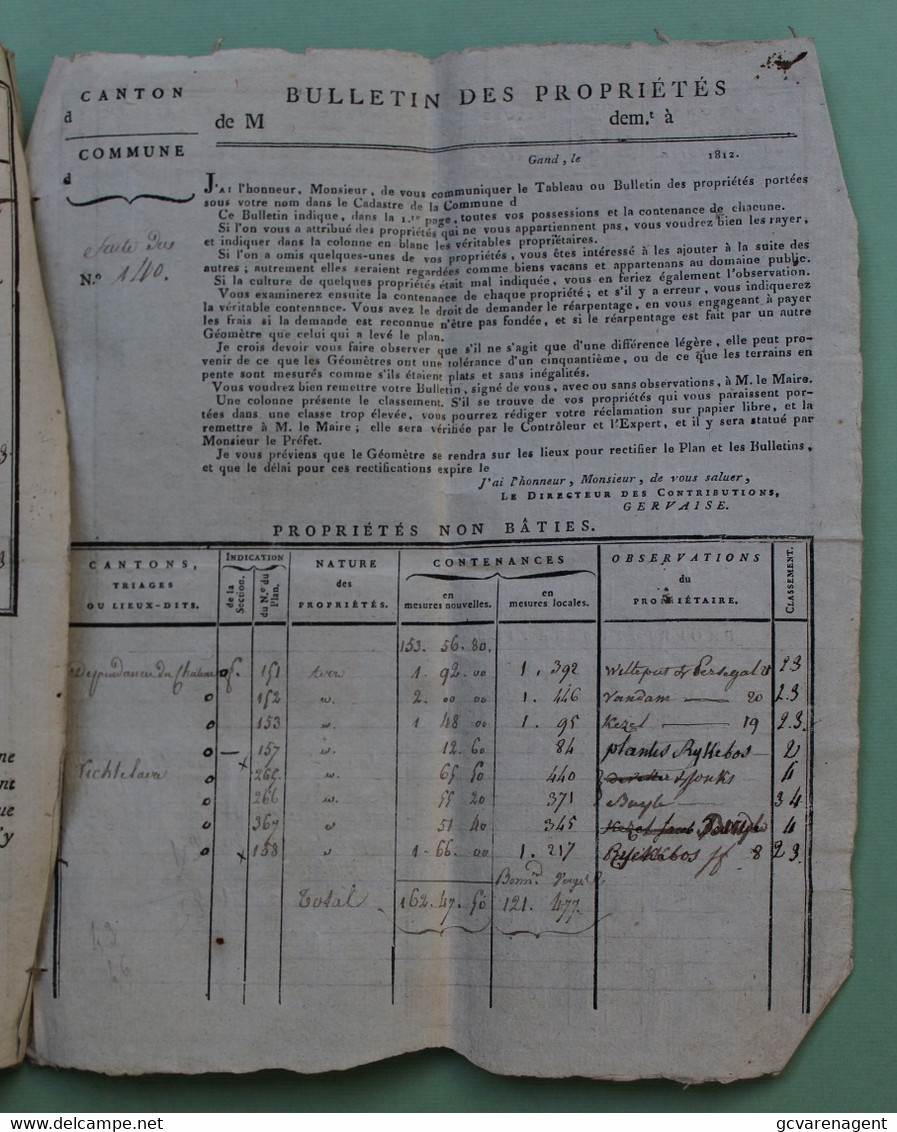 CANTON
d
COMMUNE
d
BULLETIN DES PROPRIÉTÉS
de M dem.t à
Gand, le 1812.
Suite du
N.º 140.
J'AI l'honneur, Monsieur, de vous communiquer le Tableau ou Bulletin des propriétés portées
sous votre nom dans le Cadastre de la Commune d
Ce Bulletin indique, dans la 1.re page, toutes vos possessions et la contenance de chacune.
Si l'on vous a attribué des propriétés qui ne vous appartiennent pas, vous voudrez bien les rayer,
et indiquer dans la colonne en blanc les véritables propriétaires.
Si l'on a omis quelques-unes de vos propriétés, vous êtes intéressé à les ajouter à la suite des
autres; autrement elles seraient regardées comme biens vacans et appartenans au domaine public.
Si la culture de quelques propriétés était mal indiquée, vous en feriez également l'observation.
Vous examinerez ensuite la contenance de chaque propriété; et s'il y a erreur, vous indiquerez
la véritable contenance. Vous avez le droit de demander le réarpentage, en vous engageant à payer
les frais si la demande est reconnue n'être pas fondée, et si le réarpentage est fait par un autre
Géomètre que celui qui a levé le plan.
Je crois devoir vous faire observer que s'il ne s'agit que d'une différence légère, elle peut pro-
venir de ce que les Géomètres ont une tolérance d'un cinquantième, ou de ce que les terrains en
pente sont mesurés comme s'ils étaient plats et sans inégalités.
Vous voudrez bien remettre votre Bulletin, signé de vous, avec ou sans observations, à M. le Maire.
Une colonne présente le classement. S'il se trouve de vos propriétés qui vous paraissent por-
tées dans une classe trop élevée, vous pourrez rédiger votre réclamation sur papier libre, et la
remettre à M. le Maire; elle sera vérifiée par le Contrôleur et l'Expert, et il y sera statué par
Monsieur le Préfet.
Je vous préviens que le Géomètre se rendra sur les lieux pour rectifier le Plan et les Bulletins,
et que le délai pour ces rectifications expire le
J'ai l'honneur, Monsieur, de vous saluer,
LE DIRECTEUR DES CONTRIBUTIONS,
GERVAISE.
PROPRIÉTÉS NON BÂTIES.
CANTONS, TRIAGES OU LIEUX-DITS.
INDICATION de la Section. du N.º du Plan.
NATURE des PROPRIÉTÉS.
CONTENANCES en mesures nouvelles. en mesures locales.
OBSERVATIONS du PROPRIÉTAIRE.
CLASSEMENT.
153. 56. 80.
Dependance du Chateau f. 151 1. 92. 00 1. 392 23
152 2. 00 00 1. 446 Vandam — 20 2.3
153 1 48 00 1. 95 Kezel — 19 2.3
157 12. 60 84 plantes Rykebos 2
Vichtelaere 265 65 50 440 4
266 55 20 371 Buyle 34
367 51 40 345 Kezel 4
158 1. 66. 00 1. 217 Ryckebos 8 23.
Total 162. 47. 50 121. 477.
ne
nt
ue
'y
gcvarenagent